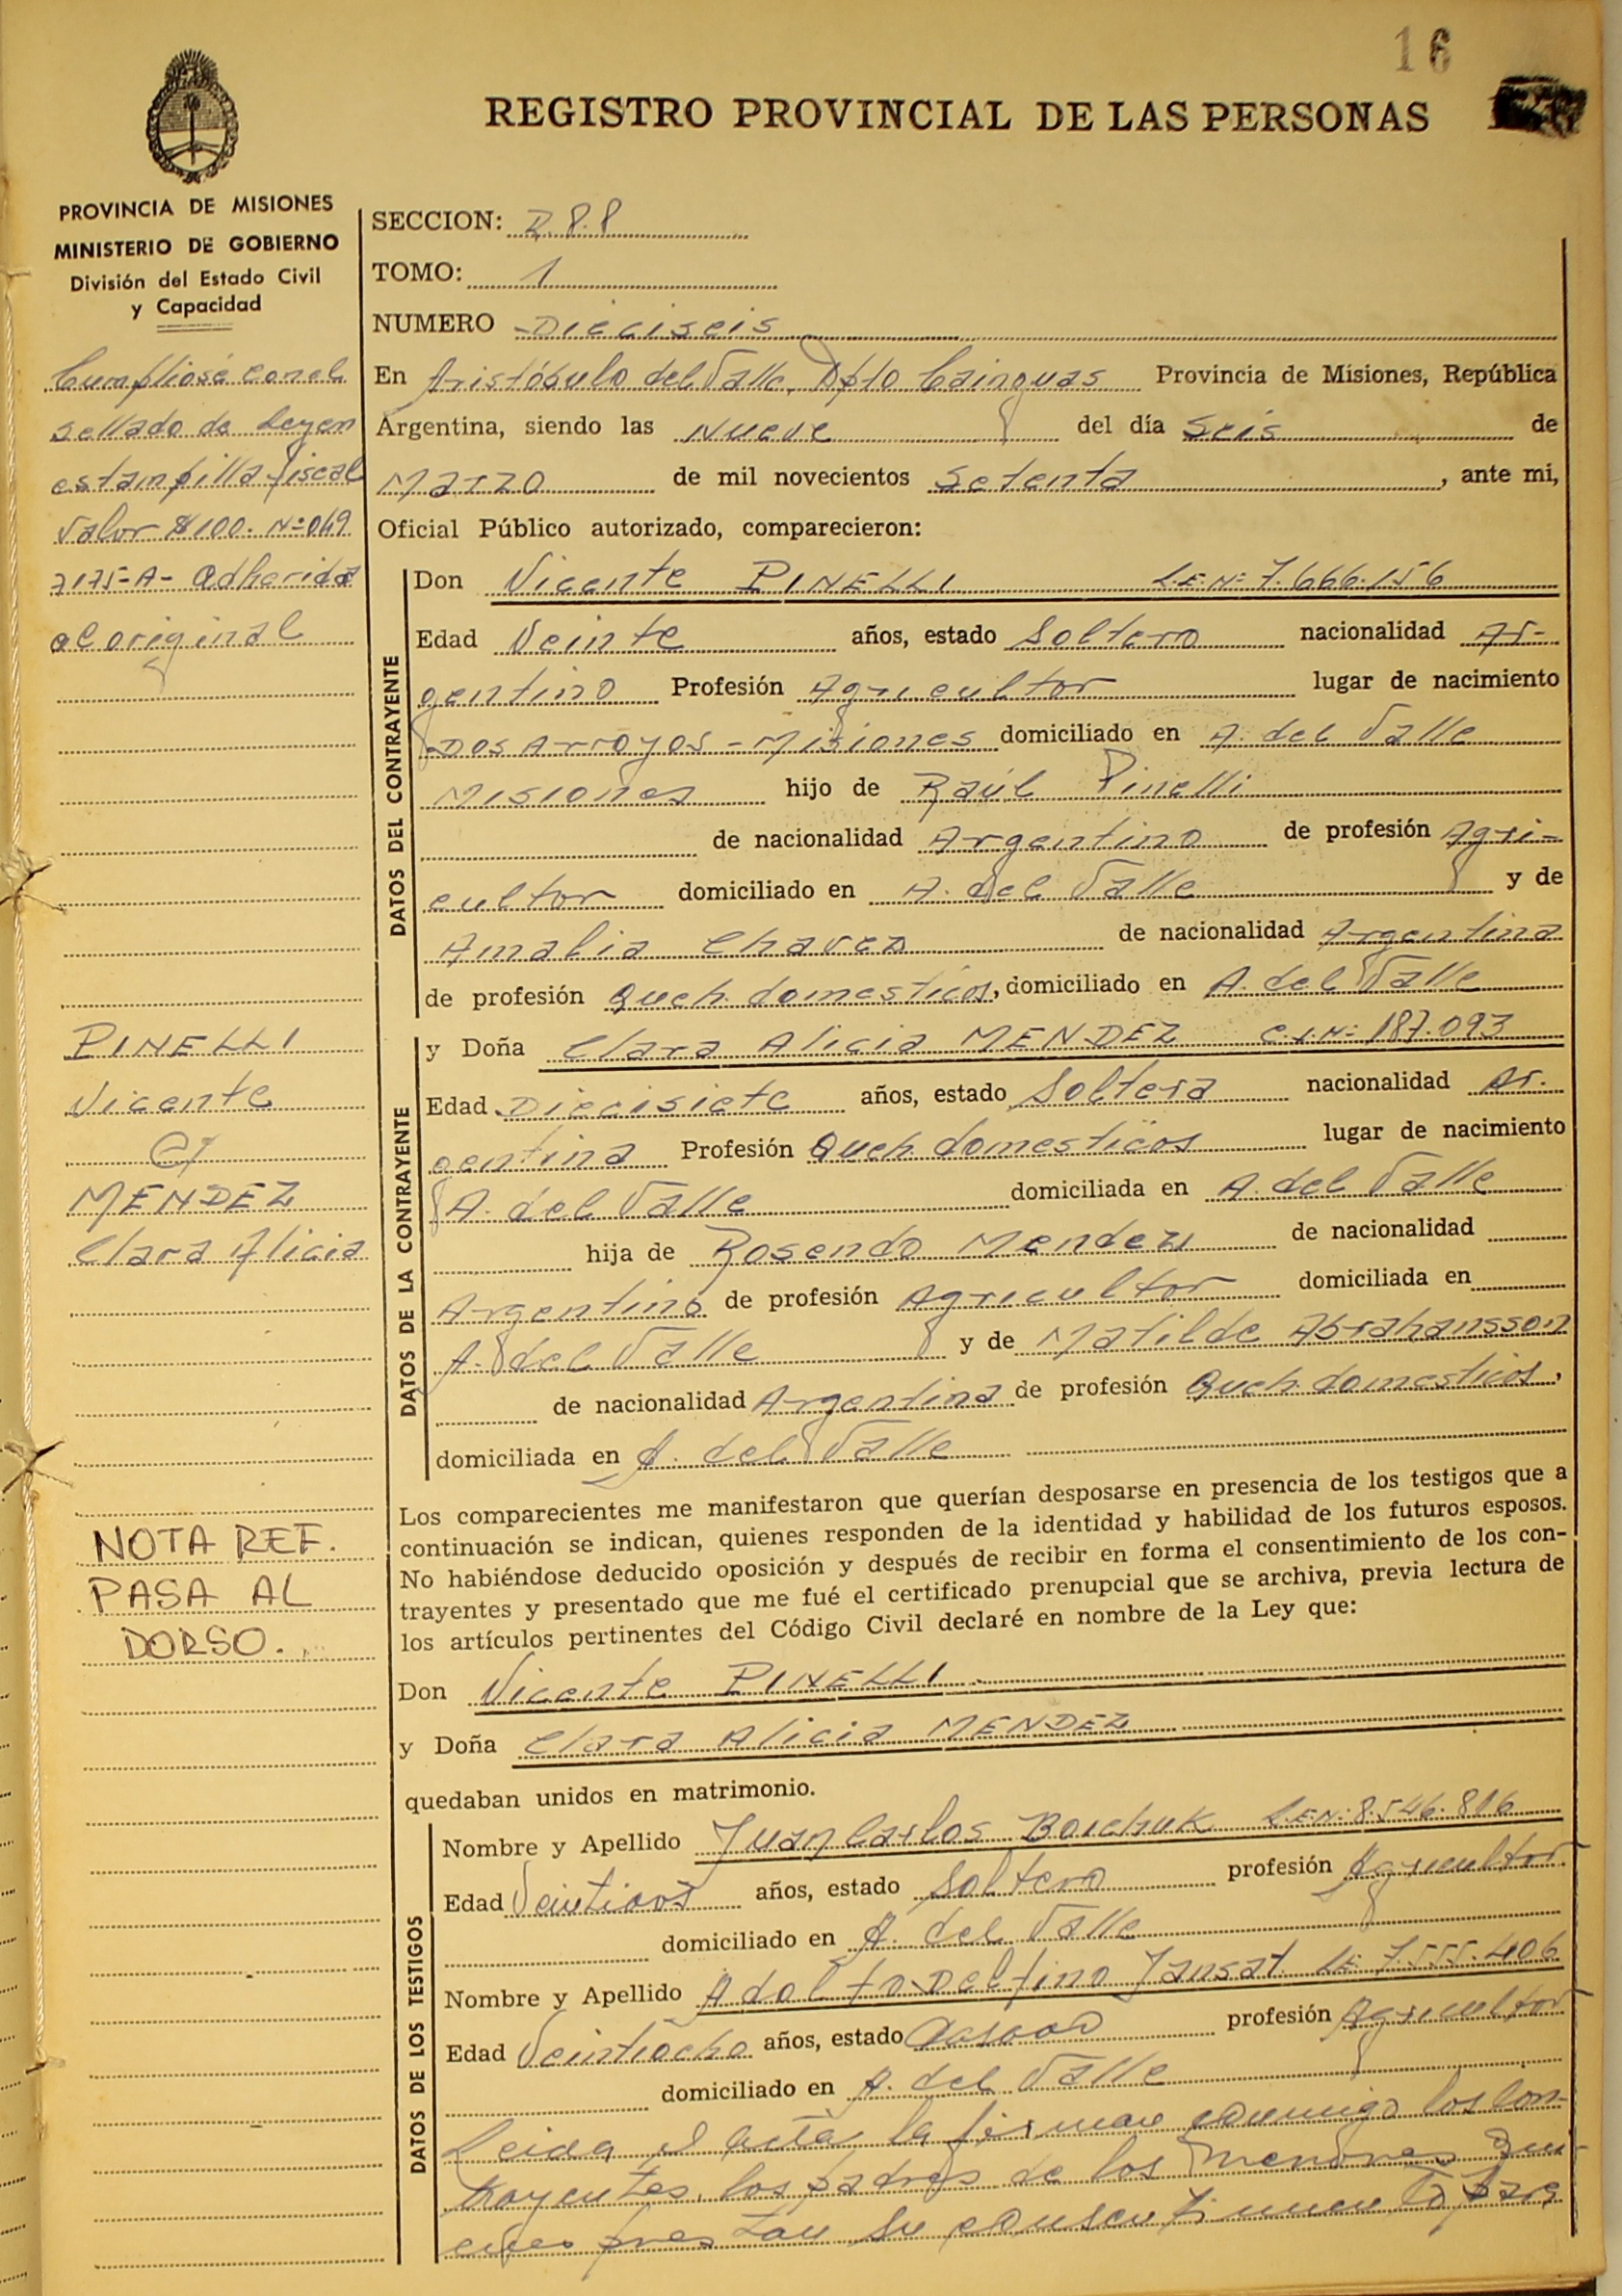 16
REGISTRO PROVINCIAL DE LAS PERSONAS
PROVINCIA DE MISIONES
MINISTERIO DE GOBIERNO
División del Estado Civil
y Capacidad
Cumpliose con el
sellado de Ley en
estampilla fiscal
Valor $100. Nº 049
7175-A- adherida
al original
PINELLI
Vicente
C/
MENDEZ
Clara Alicia
NOTA REF.
PASA AL
DORSO.
SECCION:
TOMO: 1
NUMERO -Dieciseis
En Aristóbulo del Valle, Dpto Cainguas Provincia de Misiones, República
Argentina, siendo las Nueve del día Seis de
Marzo de mil novecientos Setenta, ante mi,
Oficial Público autorizado, comparecieron:
DATOS DEL CONTRAYENTE
Don Vicente PINELLI L.E.Nº 7.666.156
Edad Veinte años, estado Soltero nacionalidad Ar-
gentino Profesión Agricultor lugar de nacimiento
-Dos Arroyos - Misiones domiciliado en A. del Valle
Misiones hijo de Raúl Pinelli
de nacionalidad Argentino de profesión Agri-
cultor domiciliado en A. del Valle y de
Amalia Chavez de nacionalidad Argentina
de profesión Queh. domesticos, domiciliado en A. del Valle
DATOS DE LA CONTRAYENTE
y Doña Clara Alicia MENDEZ C.I.Nº 187.093
Edad Diecisiete años, estado Soltera nacionalidad Ar.
gentina Profesión Queh. domesticos lugar de nacimiento
A. del Valle domiciliada en A. del Valle
hija de Rosendo Mendez de nacionalidad
Argentino de profesión Agricultor domiciliada en
A. del Valle y de Matilde Abrahansson
de nacionalidad Argentina de profesión Queh. domesticos,
domiciliada en A. del Valle
Los comparecientes me manifestaron que querían desposarse en presencia de los testigos que a
continuación se indican, quienes responden de la identidad y habilidad de los futuros esposos.
No habiéndose deducido oposición y después de recibir en forma el consentimiento de los con-
trayentes y presentado que me fué el certificado prenupcial que se archiva, previa lectura de
los artículos pertinentes del Código Civil declaré en nombre de la Ley que:
Don Vicente PINELLI
y Doña Clara Alicia MENDEZ
quedaban unidos en matrimonio.
DATOS DE LOS TESTIGOS
Nombre y Apellido Juan Carlos Boichuk L.E.Nº 8.546.816
Edad Veintidos años, estado Soltero profesión Agricultor
domiciliado en A. del Valle
Nombre y Apellido Adolfo Delfino Jansat LE 7.555.406
Edad Veintiocho años, estado Casado profesión Agricultor
domiciliado en A. del Valle
Leida el acta la firman conmigo los con-
trayentes, los padres de los menores qui
enes prestan su consentimiento para